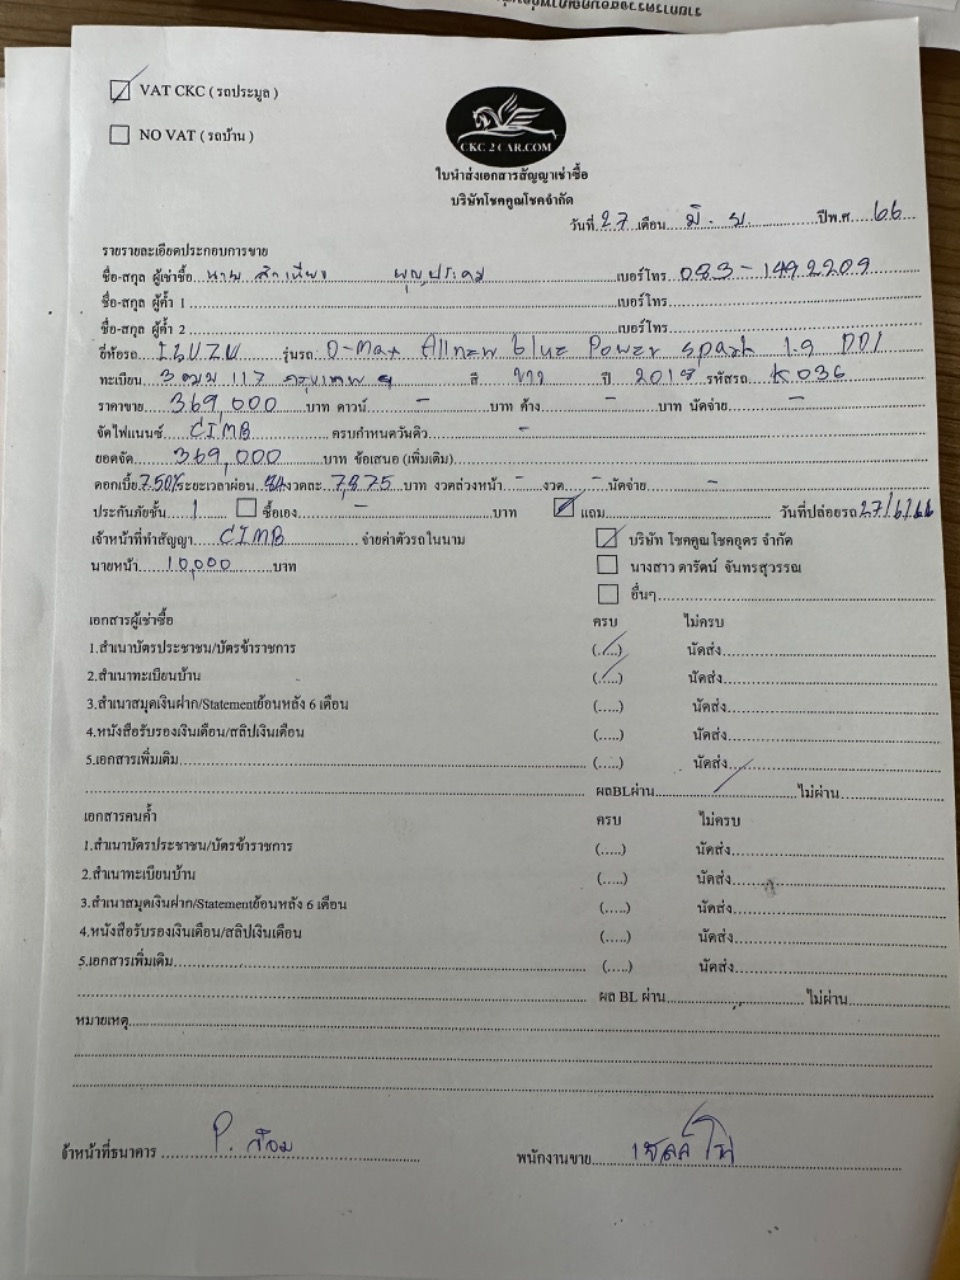 รายการตรวจสอบ
VAT CKC ( รถประมูล )
NO VAT ( รถบ้าน )
CKC 2 CAR.COM
ใบนำส่งเอกสารสัญญาเช่าซื้อ
บริษัทโชคคูณโชคจำกัด
วันที่ 27 เดือน มิ.ย. ปีพ.ศ. 66
รายรายละเอียดประกอบการขาย
ชื่อ-สกุล ผู้เช่าซื้อ นาย สำเนียง บุญประคม เบอร์โทร 083-1492209
ชื่อ-สกุล ผู้ค้ำ 1 เบอร์โทร
ชื่อ-สกุล ผู้ค้ำ 2 เบอร์โทร
ยี่ห้อรถ ISUZU รุ่นรถ D-Max All new blue Power spark 1.9 DDI
ทะเบียน 3ฒม 117 กรุงเทพ ฯ สี ขาว ปี 2018 รหัสรถ K036
ราคาขาย 369,000 บาท ดาวน์ - บาท ค้าง - บาท นัดจ่าย -
จัดไฟแนนซ์ CIMB ครบกำหนดวันดิว -
ยอดจัด 369,000 บาท ข้อเสนอ (เพิ่มเติม)
ดอกเบี้ย 7.50% ระยะเวลาผ่อน 84 งวดละ 7,875 บาท งวดล่วงหน้า - งวด - นัดจ่าย -
ประกันภัยชั้น 1 ซื้อเอง - บาท แถม วันที่ปล่อยรถ 27/6/66
เจ้าหน้าที่ทำสัญญา CIMB จ่ายค่าตัวรถในนาม บริษัท โชคคูณโชคอุดร จำกัด
นายหน้า 10,000 บาท นางสาว ดารัตน์ จันทรสุวรรณ
อื่นๆ
เอกสารผู้เช่าซื้อ ครบ ไม่ครบ
1.สำเนาบัตรประชาชน/บัตรข้าราชการ (...../) นัดส่ง
2.สำเนาทะเบียนบ้าน (...../) นัดส่ง
3.สำเนาสมุดเงินฝาก/Statementย้อนหลัง 6 เดือน (.....) นัดส่ง
4.หนังสือรับรองเงินเดือน/สลิปเงินเดือน (.....) นัดส่ง
5.เอกสารเพิ่มเติม (.....) นัดส่ง
ผลBLผ่าน / ไม่ผ่าน
เอกสารคนค้ำ ครบ ไม่ครบ
1.สำเนาบัตรประชาชน/บัตรข้าราชการ (.....) นัดส่ง
2.สำเนาทะเบียนบ้าน (.....) นัดส่ง
3.สำเนาสมุดเงินฝาก/Statementย้อนหลัง 6 เดือน (.....) นัดส่ง
4.หนังสือรับรองเงินเดือน/สลิปเงินเดือน (.....) นัดส่ง
5.เอกสารเพิ่มเติม (.....) นัดส่ง
ผล BL ผ่าน ไม่ผ่าน
หมายเหตุ
จ้าหน้าที่ธนาคาร P. จ๋อม พนักงานขาย เซลล์